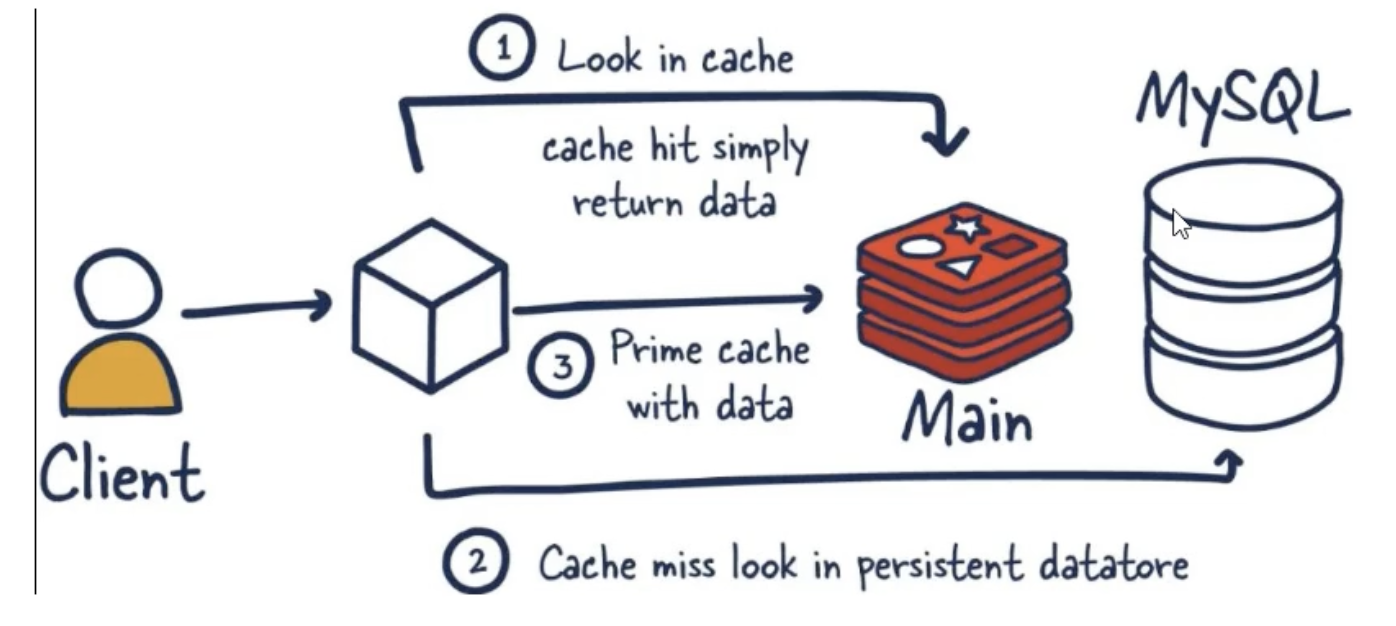 1 Look in cache
cache hit simply
return data
MySQL
3 Prime cache
with data
Main
Client
2 Cache miss look in persistent datatore